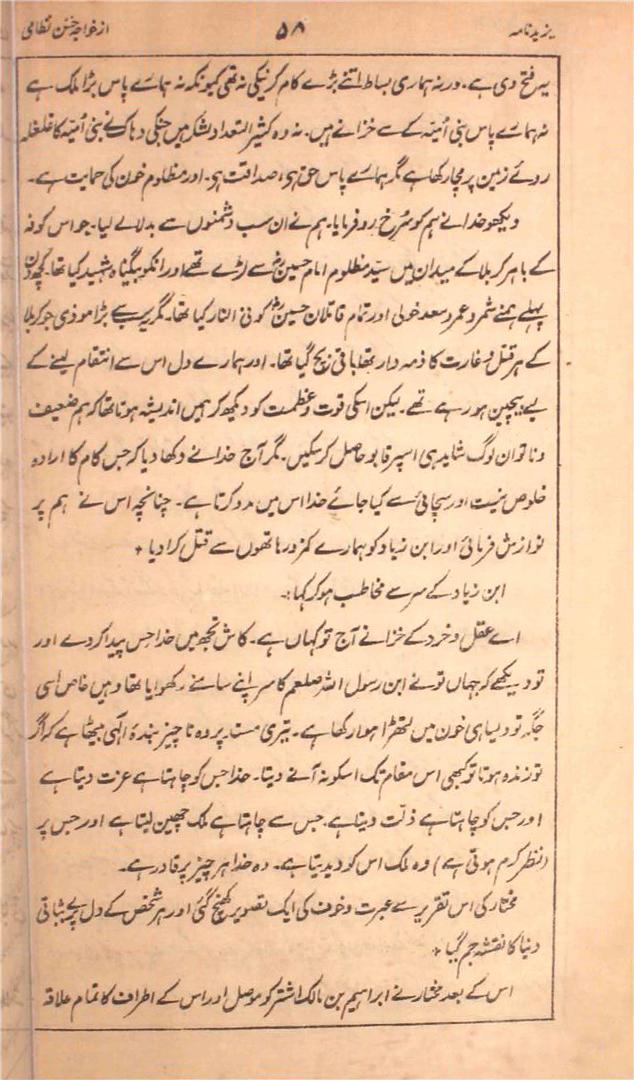 یزید نامہ
۵۸
از خواجہ حسن نظامی
یہ فتح دی ہے۔ ورنہ ہماری بساط اتنے بڑے کام کرنیکی نہ تھی کیونکہ نہ ہمارے پاس بڑا ملک ہے
نہ ہمارے پاس بنی اُمیّہ کے سے خزانے ہیں۔ نہ وہ کثیر التعداد لشکر ہیں جنکی دہاک نے بنی اُمیّہ کا غلغلہ
روئے زمین پر مچا رکھا ہے مگر ہمارے پاس حق ہی، صداقت ہی۔ اور مظلوم خون کی حمایت ہے۔
دیکھو خدا نے ہم کو سُرخ رو فرمایا۔ ہم نے ان سب دشمنوں سے بدلا لے لیا۔ جو اس کوفہ
کے باہر کربلا کے میدان میں سیّد مظلوم امام حسینؓ سے لڑے تھے اور انکو بیگناہ شہید کیا تھا۔ کچھ دن
پہلے ہمنے شمر و عمرو سعد خولی اور تمام قاتلان حسینؓ کو فی النار کیا تھا۔ مگر یہ سب سے بڑا موذی جو کربلا
کے ہر قتل و غارت کا ذمہ دار تھا باقی بچ گیا تھا۔ اور ہمارے دل اس سے انتقام لینے کے
لیے بیچین ہو رہے تھے۔ لیکن اسکی قوت و عظمت کو دیکھ کر ہمیں اندیشہ ہوتا تھا کہ ہم ضعیف
و ناتوان لوگ شاید ہی اسپر قابو حاصل کر سکیں۔ مگر آج خدا نے دکھا دیا کہ جس کام کا ارادہ
خلوص نیت اور سچائی سے کیا جائے خدا اس میں مدد کرتا ہے۔ چنانچہ اس نے ہم پر
نوازش فرمائی اور ابن زیاد کو ہمارے کمزور ہاتھوں سے قتل کرا دیا +
ابن زیاد کے سر سے مخاطب ہو کر کہا:۔
اے عقل و خرد کے خزانے آج تو کہاں ہے۔ کاش تجھ میں خدا حس پیدا کر دے اور
تو دیکھے کہ جہاں تو نے ابن رسول اللہ صلعم کا سر اپنے سامنے رکھوایا تھا وہیں خاص اُسی
جگہ تو ویسا ہی خون میں لتھڑا ہوا رکھا ہے۔ تیری مسند پر وہ ناچیز بندۂ الٰہی بیٹھا ہے کہ اگر
تو زندہ ہوتا تو کبھی اس مقام تک اسکو نہ آنے دیتا۔ خدا جس کو چاہتا ہے عزت دیتا ہے
اور جس کو چاہتا ہے ذلّت دیتا ہے۔ جس سے چاہتا ہے ملک چھین لیتا ہے اور جس پر
(نظر کرم ہوتی ہے) وہ ملک اس کو دیدیتا ہے۔ وہ خدا ہر چیز پر قادر ہے۔
مختار کی اس تقریر سے عبرت و خوف کی ایک تصویر کھنچ گئی اور ہر شخص کے دل پر بے ثباتی
دنیا کا نقشہ جم گیا +
اس کے بعد مختار نے ابراہیم بن مالک اشتر کو موصل اور اس کے اطراف کا تمام علاقہ